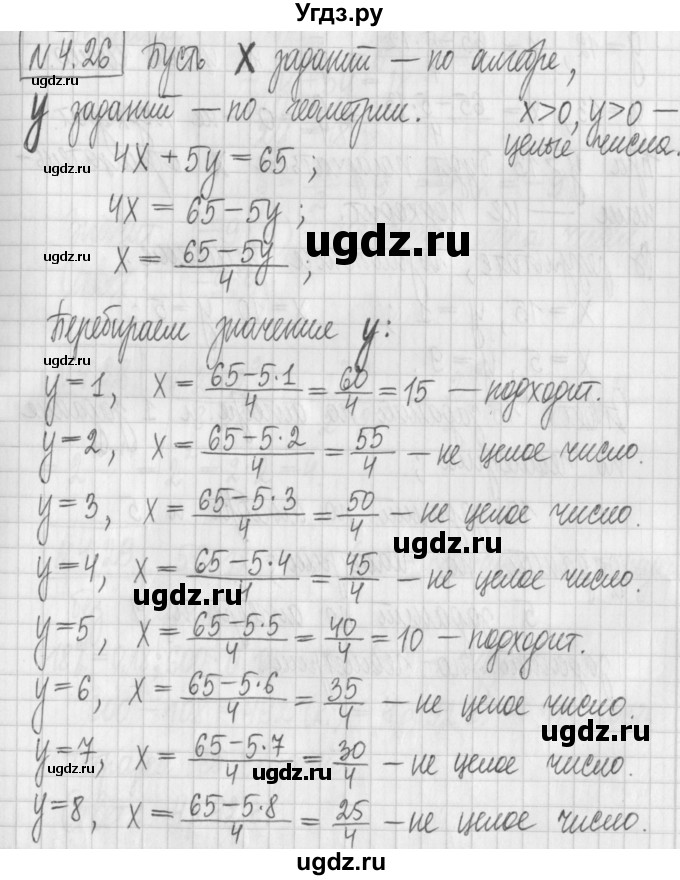 Угдз.ру
№4.26 Пусть X заданий – по алгебре,
y заданий – по геометрии. x>0, y>0 –
целые числа.
4X + 5y = 65;
4X = 65 – 5y;
X = (65 – 5y)/4;
Перебираем значение y:
y=1, X = (65–5·1)/4 = 60/4 = 15 – подходит.
y=2, X = (65–5·2)/4 = 55/4 – не целое число.
y=3, X = (65–5·3)/4 = 50/4 – не целое число.
y=4, X = (65–5·4)/4 = 45/4 – не целое число.
y=5, X = (65–5·5)/4 = 40/4 = 10 – подходит.
y=6, X = (65–5·6)/4 = 35/4 – не целое число.
y=7, X = (65–5·7)/4 = 30/4 – не целое число.
y=8, X = (65–5·8)/4 = 25/4 – не целое число.
ugdz.ru
ugdz.ru
ugdz.ru
ugdz.ru
ugdz.ru
ugdz.ru
ugdz.ru
ugdz.ru
ugdz.ru
ugdz.ru